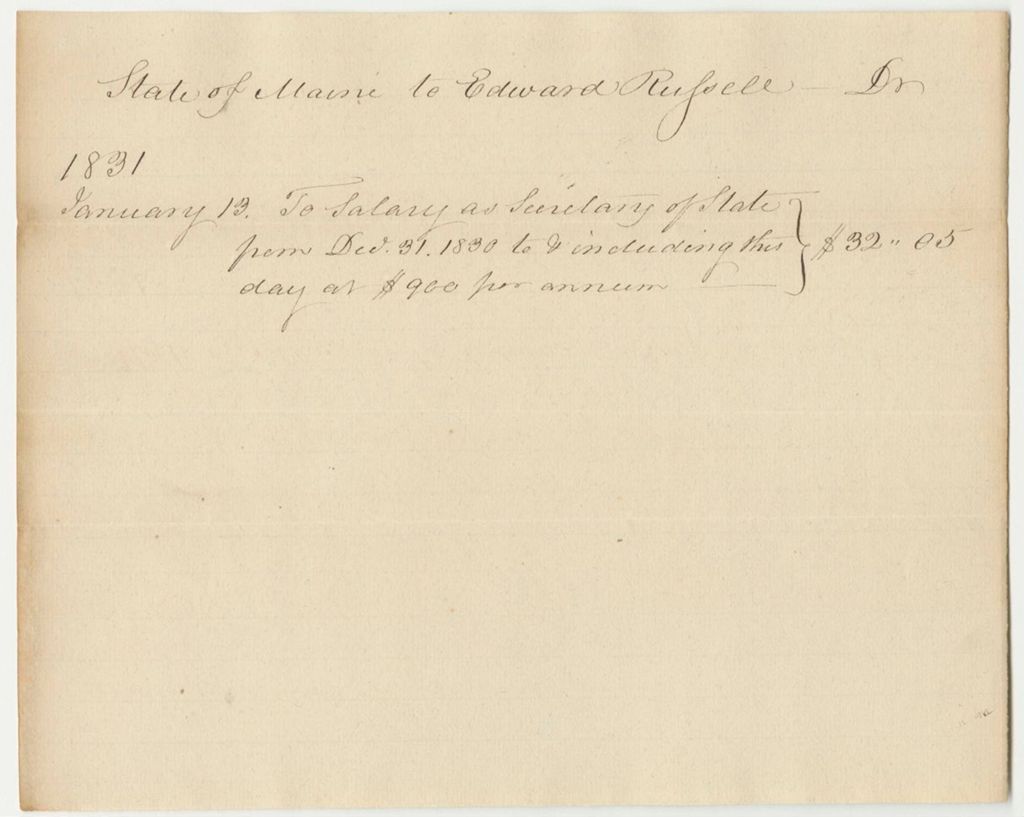 State of Maine to Edward Russell — Dr
1831
January 13. To Salary as Secretary of State
from Dec. 31. 1830 to & including this } $32" 05
day at $900 per annum